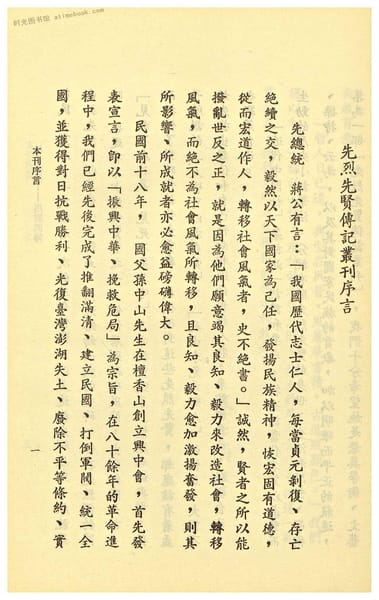 时光图书馆 atimebook.com
先烈先賢傳記叢刊序言
先總統　蔣公有言：「我國歷代志士仁人，每當貞元剝復、存亡
絕續之交，毅然以天下國家為己任，發揚民族精神，恢宏固有道德，
從而宏道作人，轉移社會風氣者，史不絕書。」誠然，賢者之所以能
撥亂世反之正，就是因為他們願意竭其良知、毅力來改造社會，轉移
風氣，而絕不為社會風氣所轉移，且良知、毅力愈加激揚奮發，則其
所影響、所成就者亦必愈益磅礴偉大。
民國前十八年，　國父孫中山先生在檀香山創立興中會，首先發
表宣言，即以「振興中華、挽救危局」為宗旨，在八十餘年的革命進
程中，我們已經先後完成了推翻滿清、建立民國、打倒軍閥、統一全
國，並獲得對日抗戰勝利、光復臺灣澎湖失土、廢除不平等條約、實
本刊序言
一